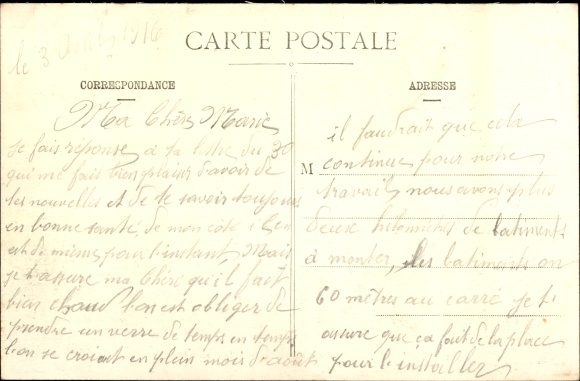 le 3 1916
CARTE POSTALE
CORRESPONDANCE
Ma Chère Marie
Je fais réponse à ta lettre du 30
qui me fais bien plaisir d'avoir de
tes nouvelles et de te savoir toujours
en bonne santé, de mon côté il en
est de même pour l'instant, Mais
je t'assure ma Chère qu'il fait
bien chaud l'on est obliger de
prendre un verre de temps en temps
l'on se croirait en plein mois d'août
ADRESSE
il faudrait que cela
M continue pour notre
travail, nous avons plus
deux kilomètres de batiments
à monter, les batiments on
60 mètres au carré je t'
assure que ça fait de la place
pour le installer